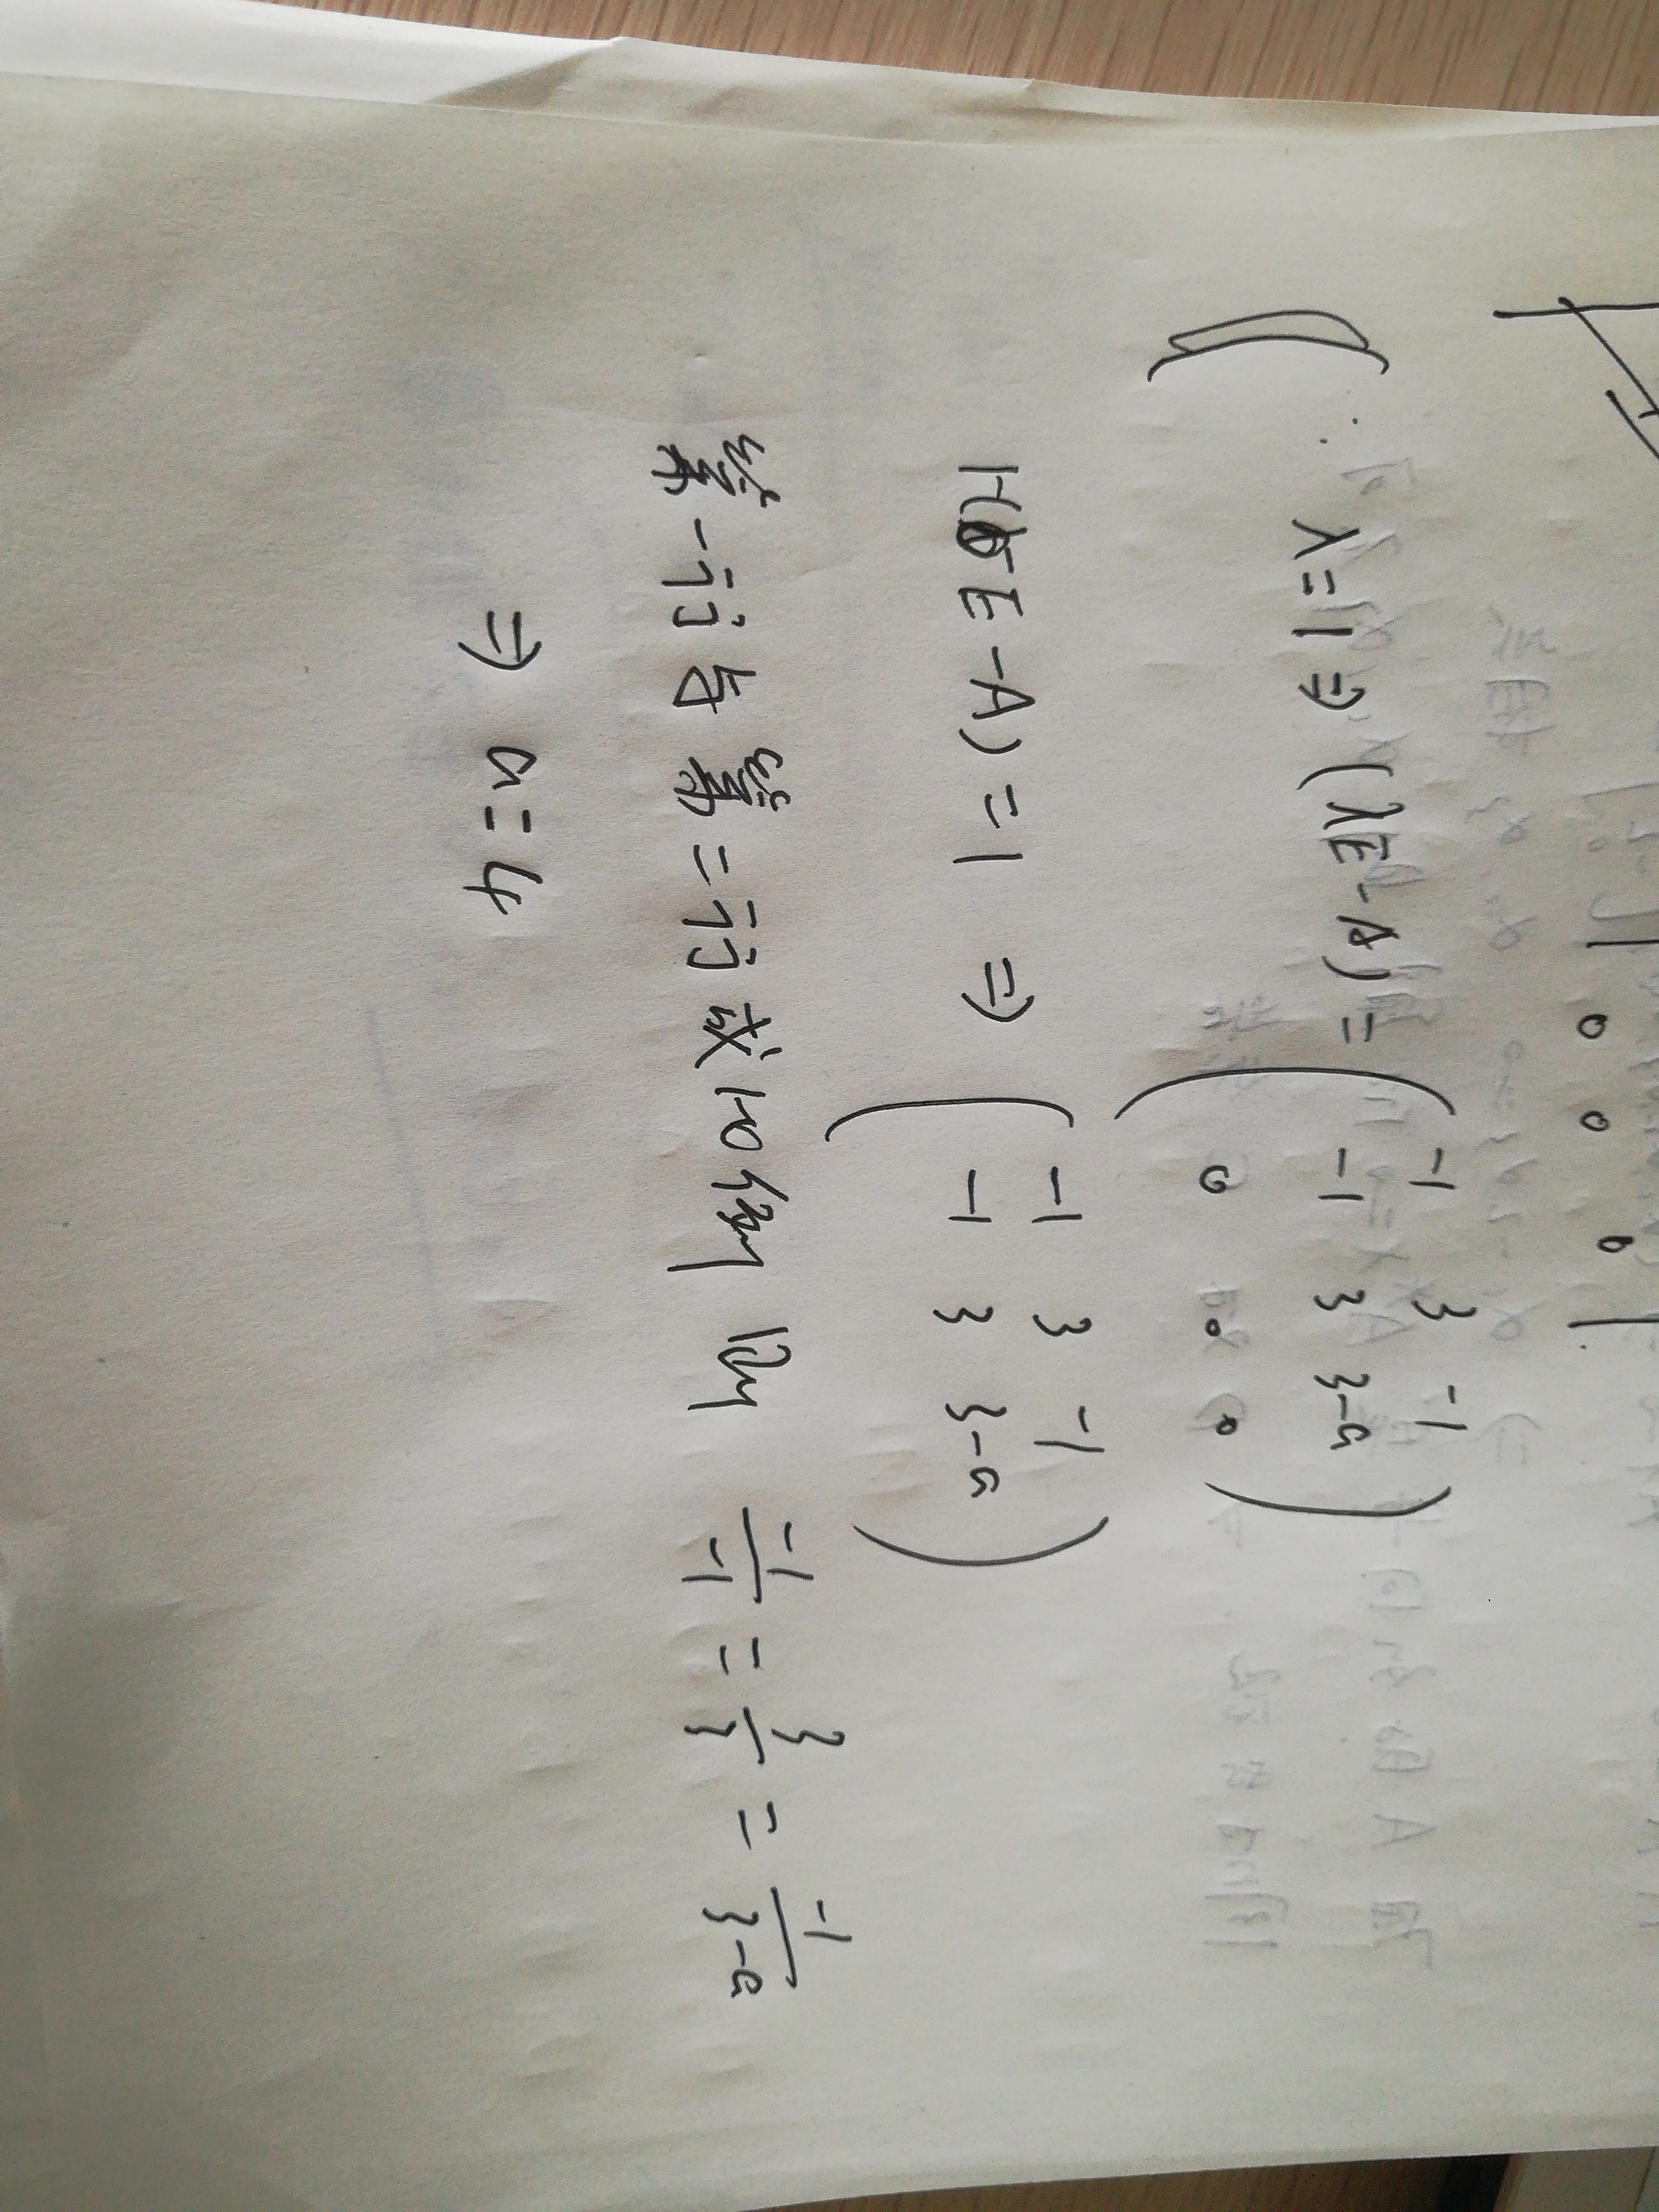 0 0 0
∴ λ=1 ⇒ (λE-A) = ( -1 3 -1
-1 3 3-a
0 0 0 )
r(E-A) = 1 ⇒ ( -1 3 -1
-1 3 3-a )
第一行与第二行成比例 则 -1/-1 = 3/3 = -1/3-a
⇒ a=4